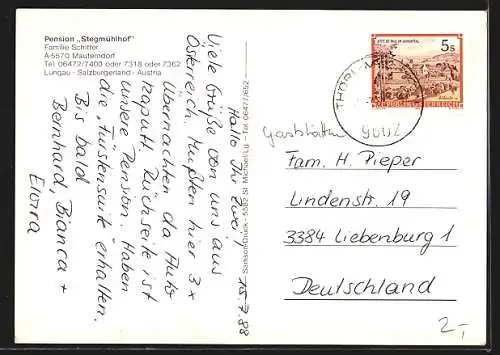 Pension „Stegmühlhof"
Familie Schitter
A-5570 Mauterndorf
Tel 06472/7400 oder 7318 oder 7362
Lungau - Salzburgerland - Austria
Hallo Ihr zwei!
15.7.88
Viele Grüße von uns aus
Österreich. Mußten hier 3 x
übernachten da Auto
kaputt. Rückseite ist
unsere Pension. Haben
die „Fürstensuite" erhalten.
Bis bald
Bernhard, Bianca +
Elvira
Samson-Druck - 5582 St. Michael/Lg. - Tel. 06477/652
5 S
REPUBLIK ÖSTERREICH
THÖRL-
9602
Gaststätten
Fam. H. Pieper
Lindenstr. 19
3384 Liebenburg 1
Deutschland
2,-